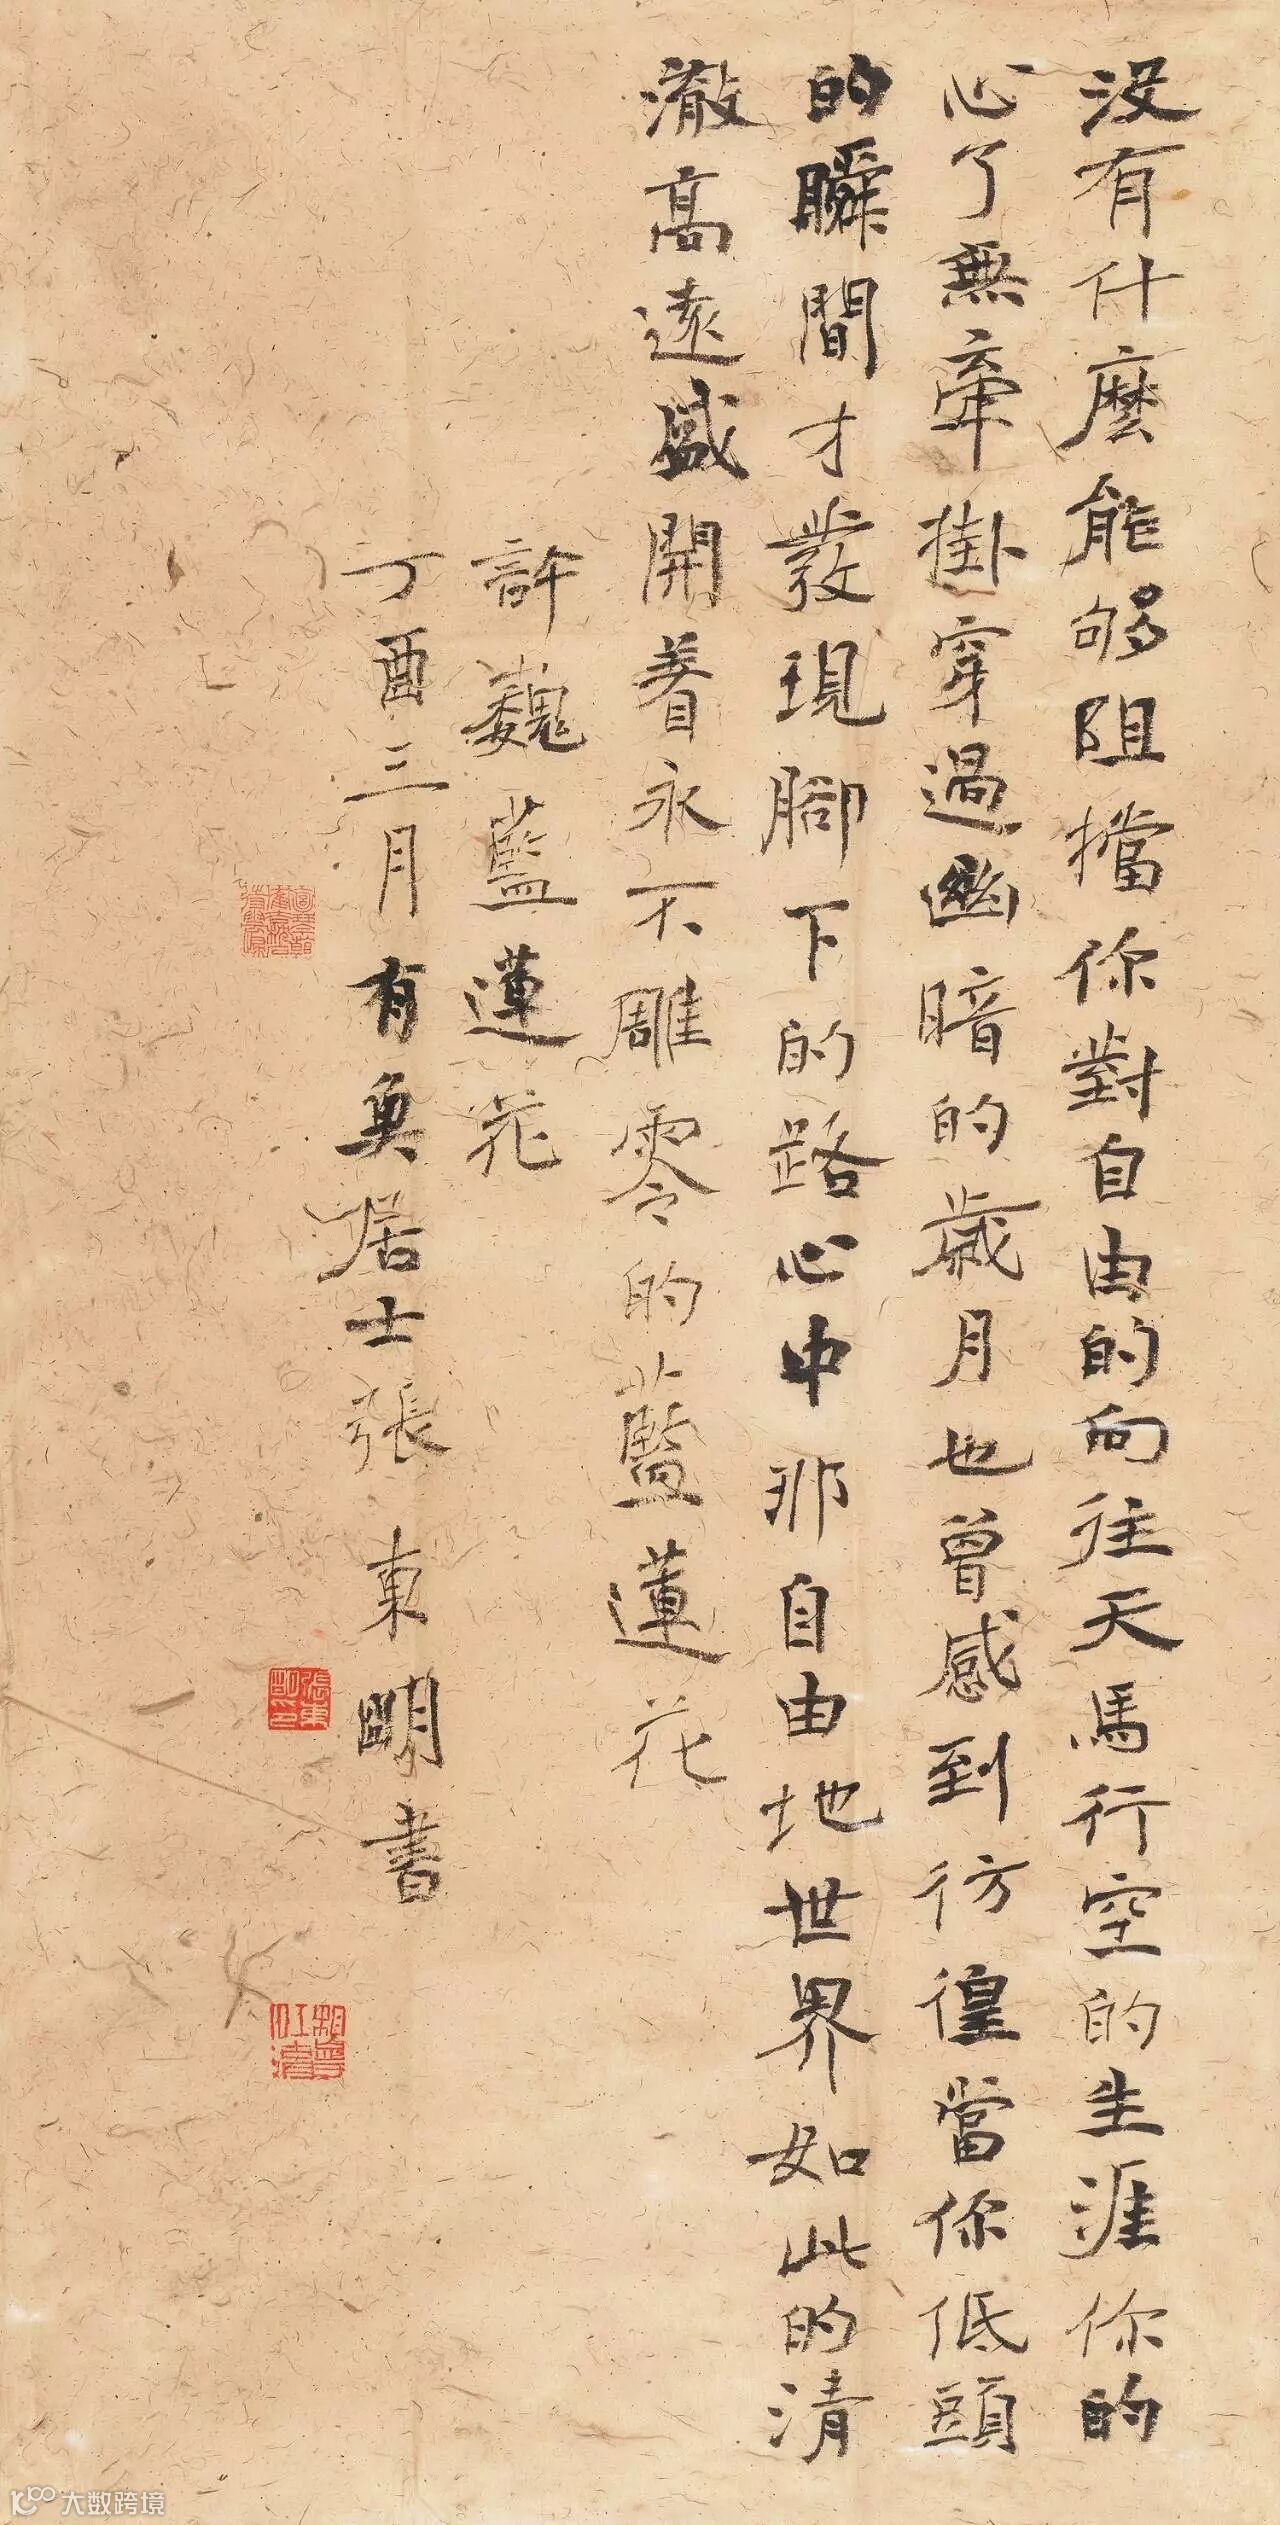 没有什麽能够阻擋你對自由的向往天馬行空的生涯你的
心了無牽掛穿過幽暗的歲月也曾感到彷徨當你低頭
的瞬間才發現腳下的路心中那自由地世界如此的清
澈高遠盛開着永不雕零的藍蓮花
許巍藍蓮花
丁酉三月有奐居士張東明書
張東明印
大数跨境